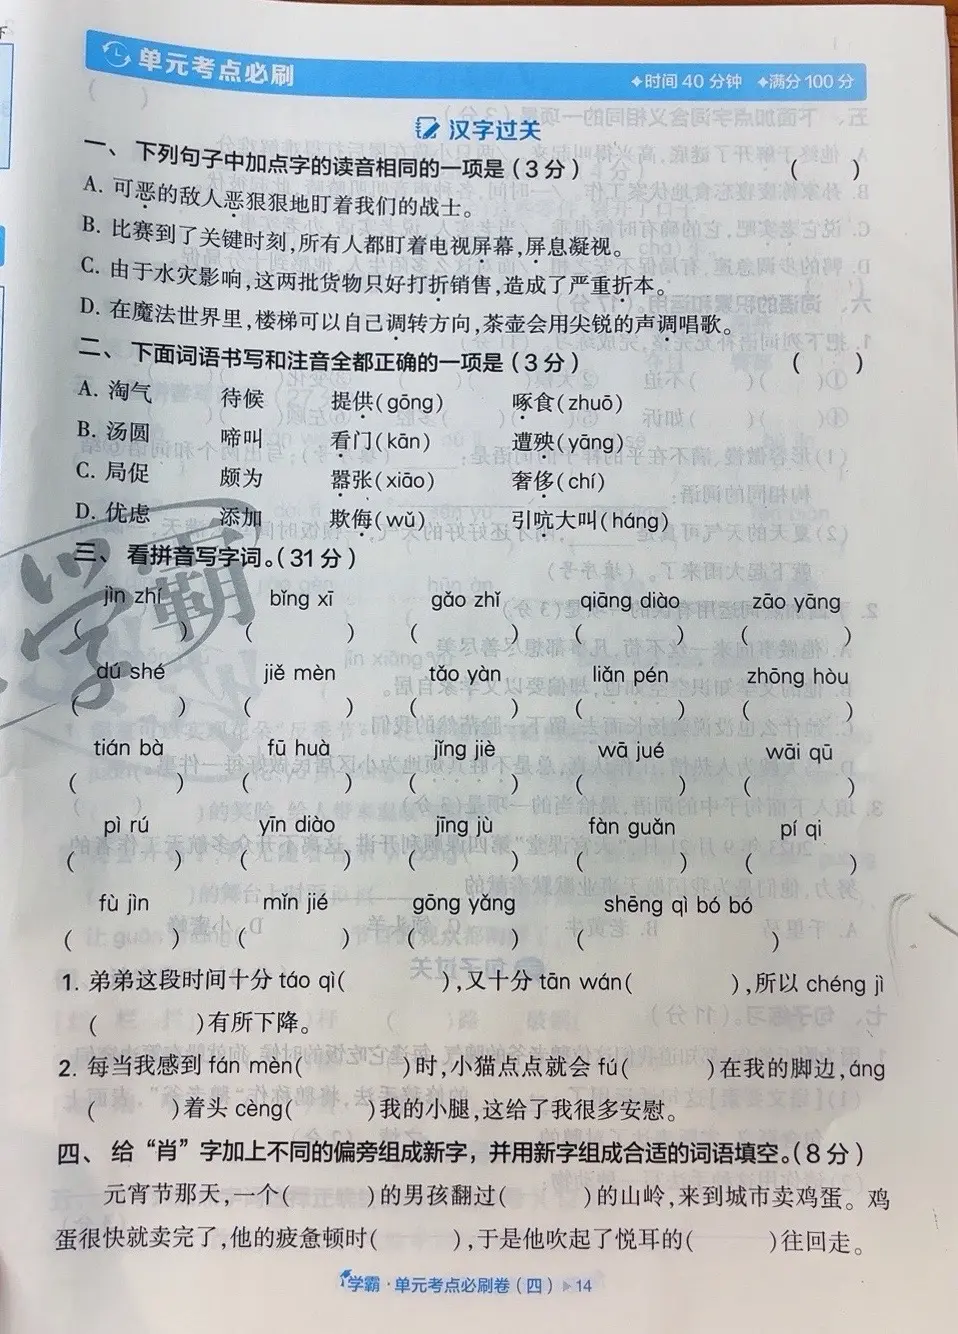 单元考点必刷
时间 40 分钟 满分 100 分
汉字过关
一、 下列句子中加点字的读音相同的一项是(3 分) ( )
A. 可恶的敌人恶狠狠地盯着我们的战士。
B. 比赛到了关键时刻,所有人都盯着电视屏幕,屏息凝视。
C. 由于水灾影响,这两批货物只好打折销售,造成了严重折本。
D. 在魔法世界里,楼梯可以自己调转方向,茶壶会用尖锐的声调唱歌。
二、 下面词语书写和注音全都正确的一项是(3 分) ( )
A. 淘气 待候 提供(gōng) 啄食(zhuō)
B. 汤圆 啼叫 看门(kān) 遭殃(yāng)
C. 局促 颇为 嚣张(xiāo) 奢侈(chí)
D. 优虑 添加 欺侮(wǔ) 引吭大叫(háng)
学霸
三、 看拼音写字词。(31 分)
jìn zhǐ bǐng xī gǎo zhǐ qiāng diào zāo yāng
( ) ( ) ( ) ( ) ( )
dú shé jiě mèn tǎo yàn liǎn pén zhōng hòu
( ) ( ) ( ) ( ) ( )
tián bà fū huà jǐng jiè wā jué wāi qū
( ) ( ) ( ) ( ) ( )
pì rú yīn diào jīng jù fàn guǎn pí qi
( ) ( ) ( ) ( ) ( )
fù jìn mǐn jié gōng yǎng shēng qì bó bó
( ) ( ) ( ) ( )
1. 弟弟这段时间十分 táo qì( ),又十分 tān wán( ),所以 chéng jì
( )有所下降。
2. 每当我感到 fán mèn( )时,小猫点点就会 fú( )在我的脚边,áng
( )着头 cèng( )我的小腿,这给了我很多安慰。
四、 给“肖”字加上不同的偏旁组成新字，并用新字组成合适的词语填空。(8 分)
元宵节那天,一个( )的男孩翻过( )的山岭,来到城市卖鸡蛋。鸡
蛋很快就卖完了,他的疲惫顿时( ),于是他吹起了悦耳的( )往回走。
学霸·单元考点必刷卷(四) 14